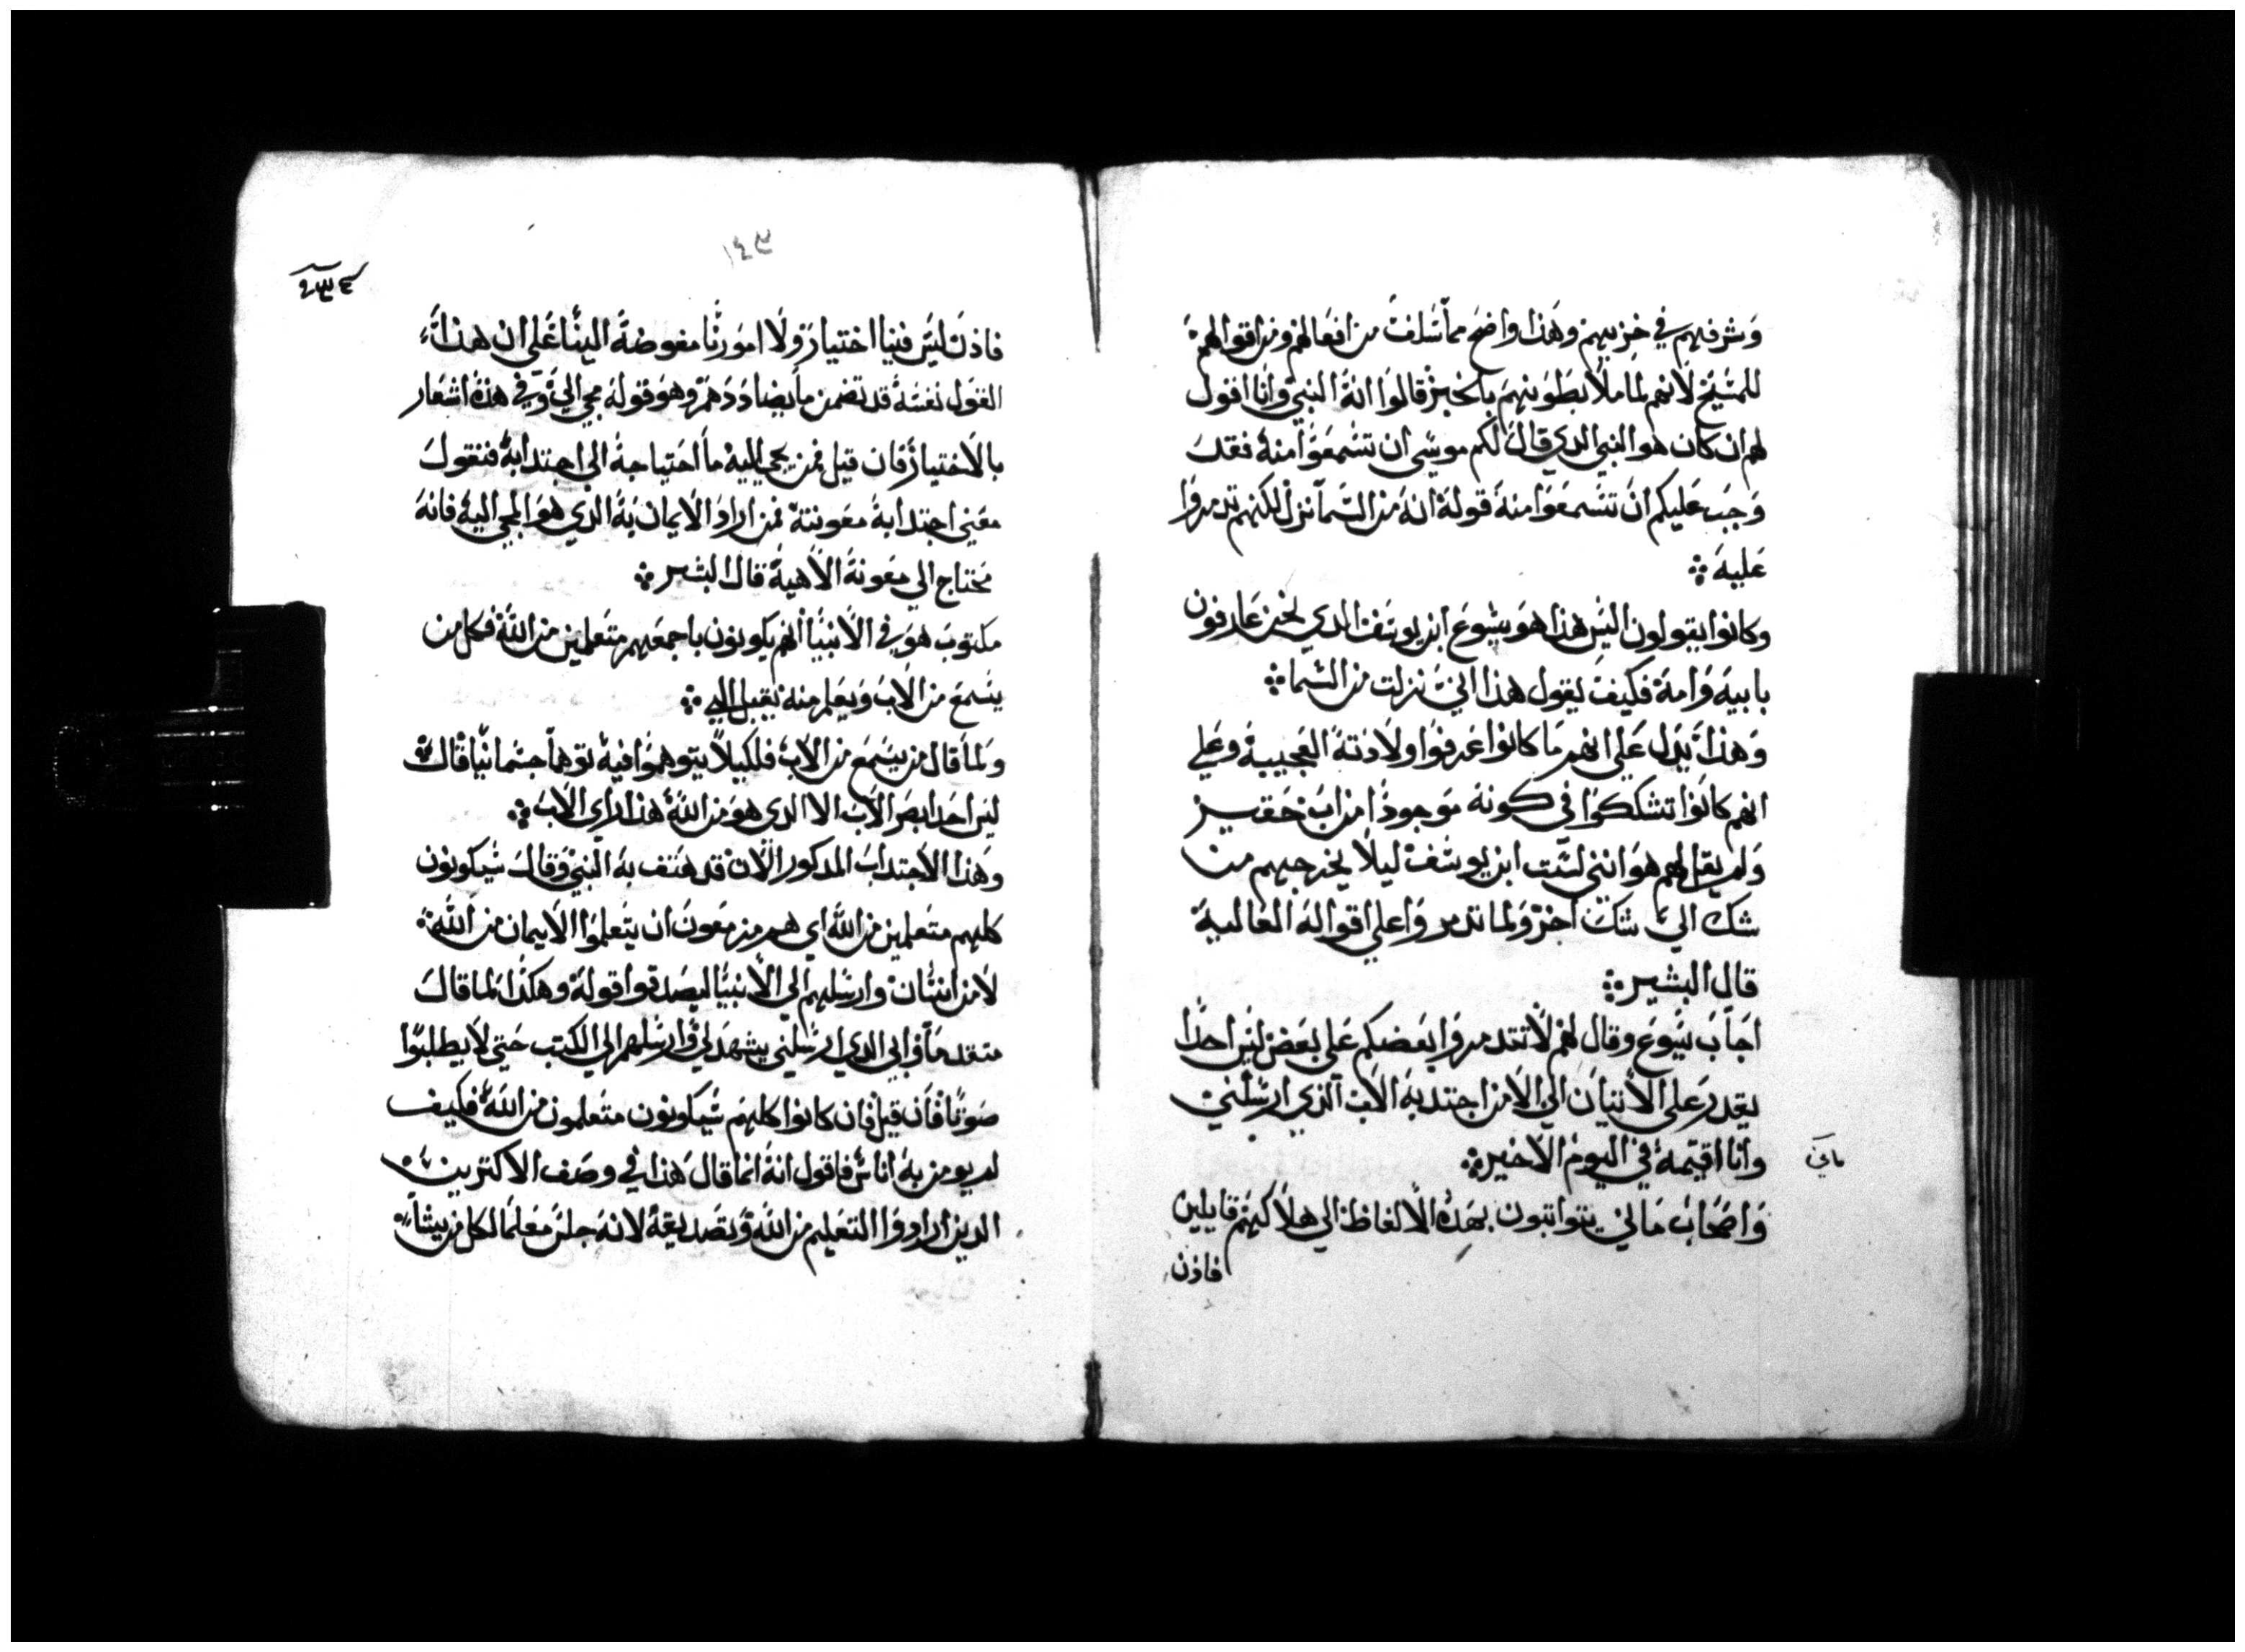 وشرفهم في خزيهم وهذا واضح مما سلفت من افعالهم ومن اقوالهم
للمسيح لانهم لما ملا بطونهم بالخبز قالوا انه النبي وانا اقول
لهم ان كان هو النبي الدي قال لكم موسي ان تسمعوا منه فقد
وجب عليكم ان تسمعوا منه قوله انه من السما نزل لكنهم تدمروا
عليه
وكانوا يقولون اليس هذا هو يشوع ابن يوسف الدي نحن عارفون
بابيه وامه فكيف يقول هذا اني نزلت من السما
وهذا يدل علي انهم ما كانوا عرفوا ولادته العجيبة وعلي
انهم كانوا تشككوا في كونه موجودا من اب حقير
ولم يقل لهم هو انني لست ابن يوسف ليلا يخرجهم من
شك الي شك اخر ولما تدمروا علي اقواله العالية
قال البشير
اجاب يسوع وقال لهم لا تتقدمروا بعضكم علي بعض ليس احدا
يقدر علي الاتيان الي الا من اجتدبه الاب الذي ارسلني
وانا اقيمه في اليوم الاخير
ماني
واصحاب ماني يتواتبون بهذه الالفاظ الي هلاكهم قايلين
فاذن
١٤٣
فاذن ليس فينا اختيار ولا امورنا مفوضة الينا علي ان هذا
القول نفسه قد تضمن ما يضاددهم وهو قوله يجي الي وفي هذه اشعار
بالاختيار فان قيل فمن يجي اليه ما احتياجه الي اجتدابه فنقول
معني اجتدابه معونته فمن اراد الايمان به الذي هو المجي اليه فانه
محتاج الي معونة الاهية قال البشير
مكتوب هو في الانبيا انهم يكونون باجمعهم متعلمين من الله فكل من
يسمع من الاب ويعلم منه يقبل الي
ولما قال من يسمع من الاب فلكيلا يتوهموا فيه توهما جسمانيا قال
ليس احد ابصر الاب الا الدي هو من الله هذا راي الاب
وهذا الاجتداب المدكور الان قد هتف به النبي وقال سيكونون
كلهم متعلمين من الله اي هم مزمعون ان يتعلموا الايمان من الله
لا من انسان وارسلهم الي الانبيا ليصدقوا قوله وهكذا لما قال
متقدما وابي الدي ارسلني يشهد لي وارسلهم الي الكتب حتي لا يطلبوا
صوتا فان قيل فان كانوا كلهم سيكونون متعلمون من الله فكيف
لم يومن به اناس فاقول انه انما قال هذا في وصف الاكترين
الدين ارادوا التعليم من الله وتصديقه لانه جلس معلما لكل من يشا